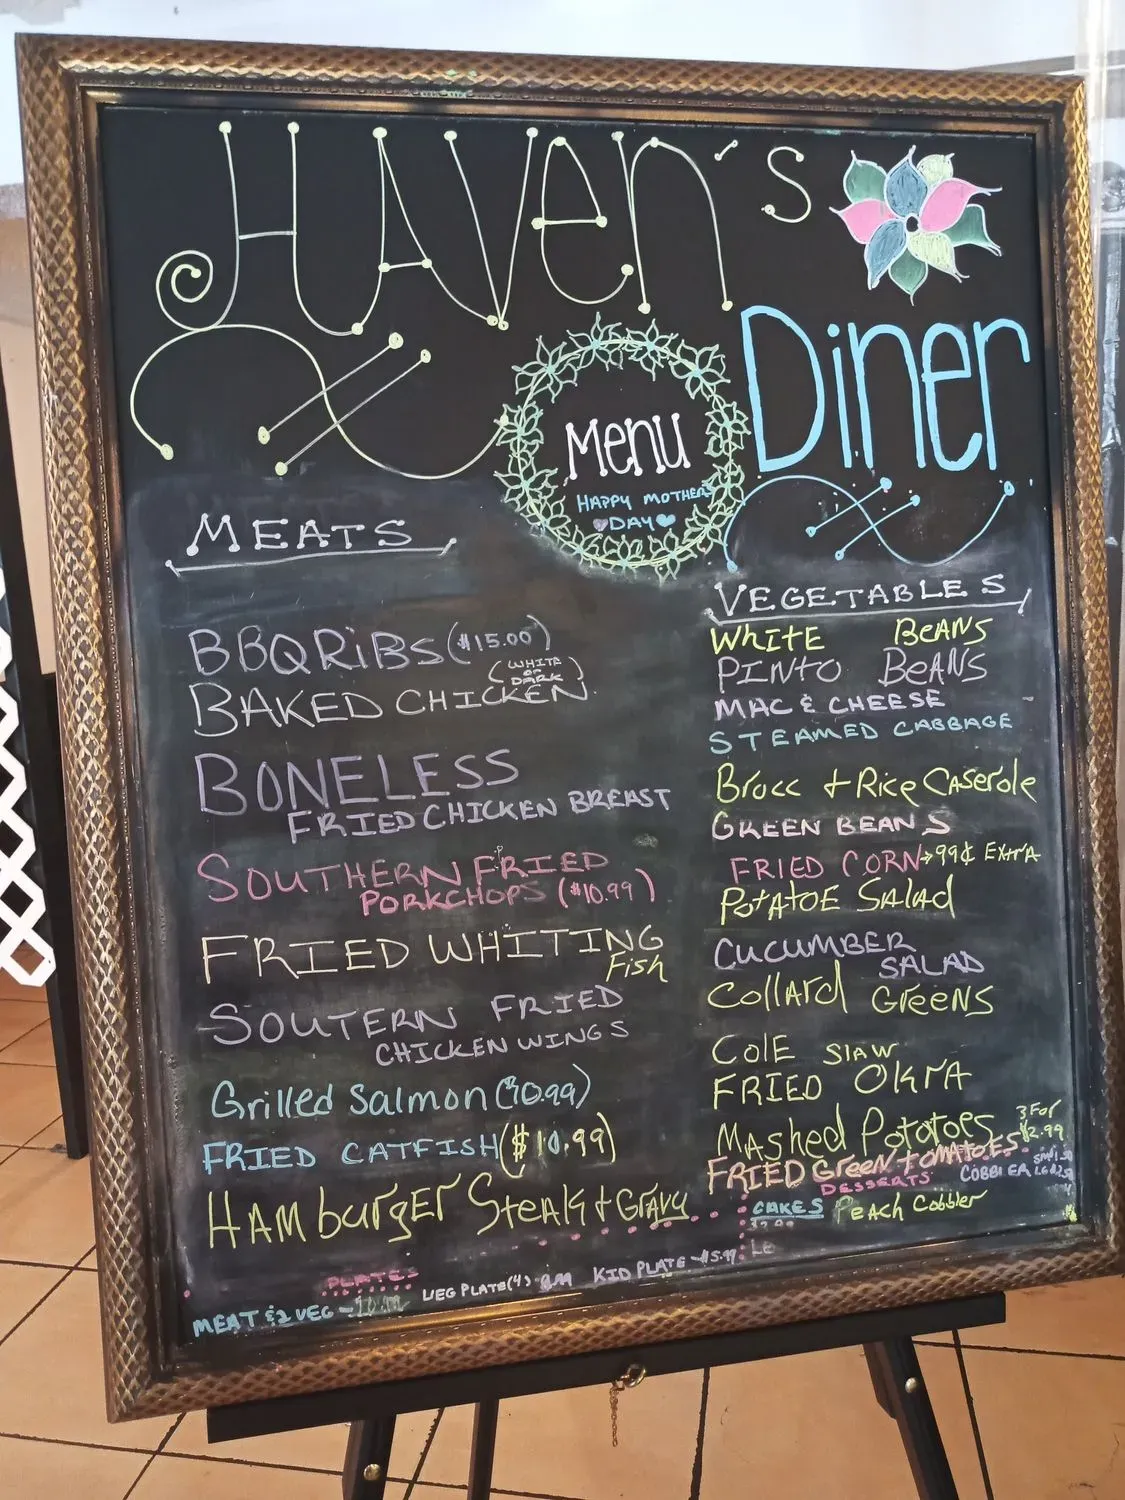 HAVen's
Diner
Menu
HAPPY MOTHERS
DAY
MEATS
BBQ RiBS ($15.00)
BAKED CHICKEN (WHITE OR DARK)
BONELESS
FRIED CHICKEN BREAST
SOUTHERN FRIED
PORKCHOPS ($10.99)
FRIED WHITING
Fish
SOUTERN FRIED
CHICKEN WINGS
Grilled Salmon
FRIED CATFISH ($10.99)
HAMburgER SteAk + GrAvy
VEGETABLES
WHItE BEANS
PINTO BEANS
MAC & CHEESE
STEAMED CABBAGE
Brocc + Rice CASerole
GREEN BEANS
FRIED CORN→99¢ ExtrA
PotAtOE SAlAd
CUCUMBER
SALAD
CollArd GreeNS
ColE SlAW
FRIED OkrA
MAshed Potatoes
FRIED Green tomAtoes 3 For $2.99
DESSERTS
COBBLER
CAKES PeAch Cobbler
PLATES
MEAT & 2 VEG -
VEG PLATE (4)
KID PLATE - $5.99